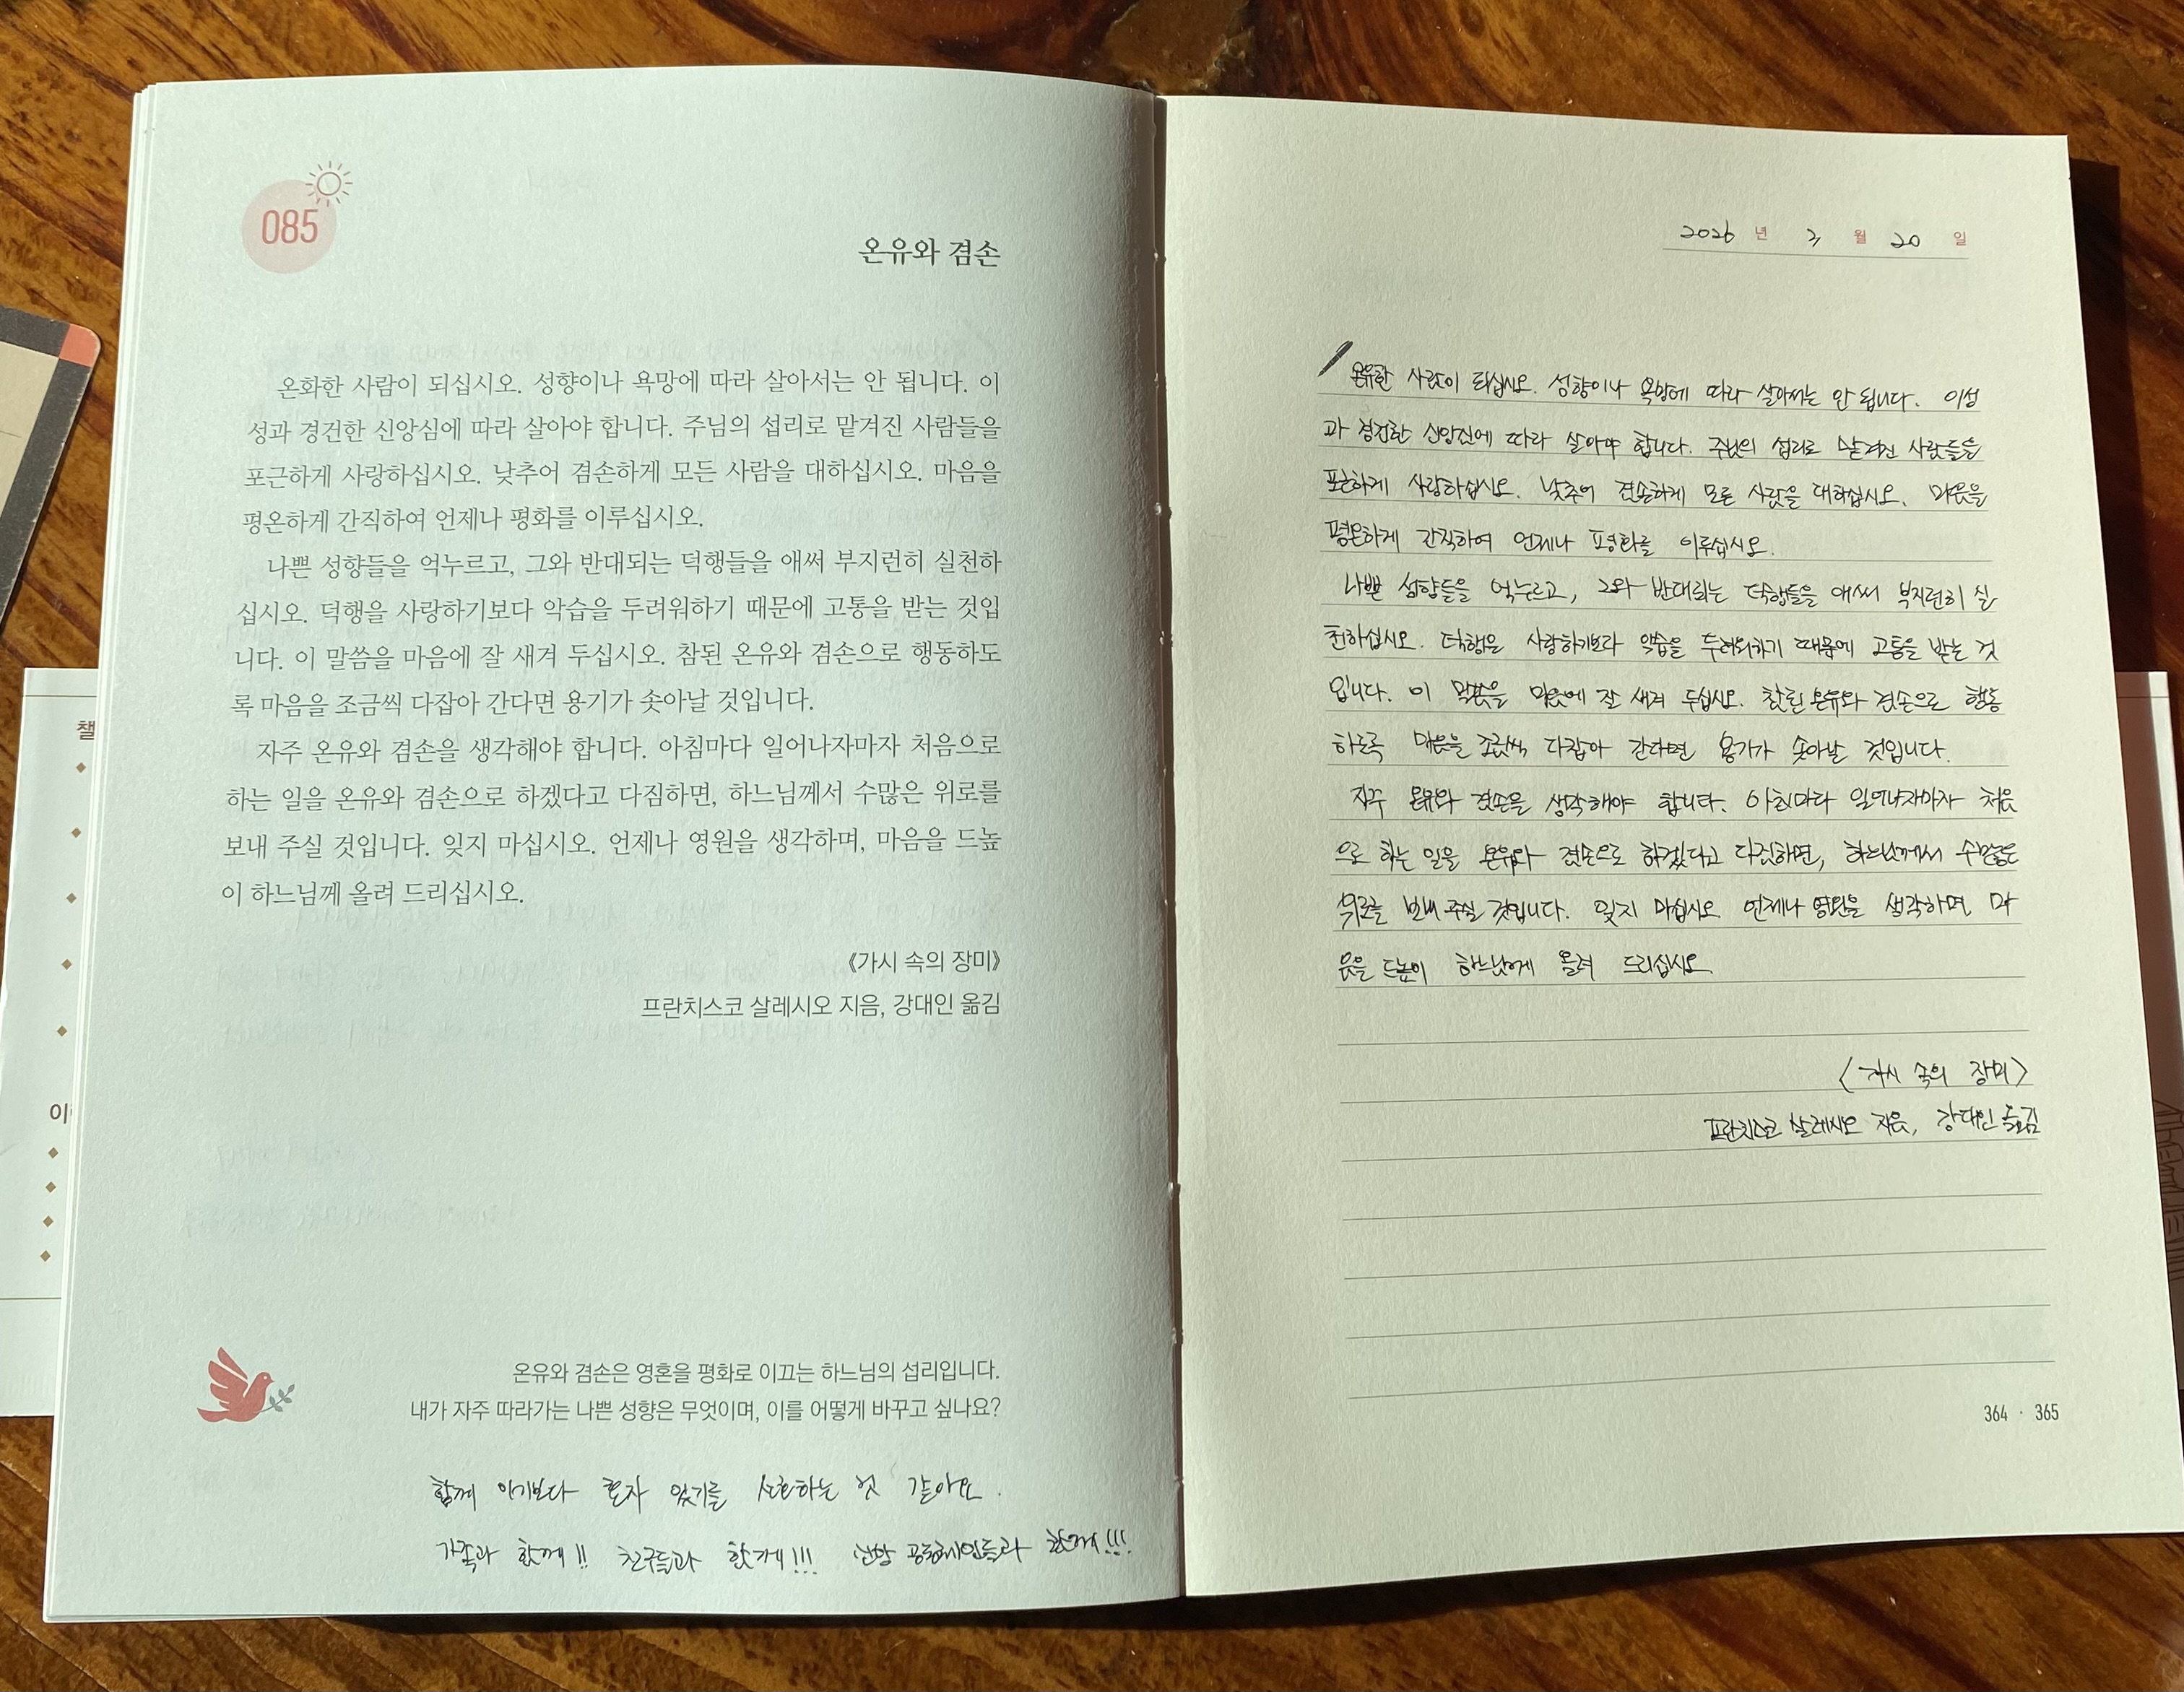 085
온유와 겸손
온화한 사람이 되십시오. 성향이나 욕망에 따라 살아서는 안 됩니다. 이
성과 경건한 신앙심에 따라 살아야 합니다. 주님의 섭리로 맡겨진 사람들을
포근하게 사랑하십시오. 낮추어 겸손하게 모든 사람을 대하십시오. 마음을
평온하게 간직하여 언제나 평화를 이루십시오.
나쁜 성향들을 억누르고, 그와 반대되는 덕행들을 애써 부지런히 실천하
십시오. 덕행을 사랑하기보다 악습을 두려워하기 때문에 고통을 받는 것입
니다. 이 말씀을 마음에 잘 새겨 두십시오. 참된 온유와 겸손으로 행동하도
록 마음을 조금씩 다잡아 간다면 용기가 솟아날 것입니다.
자주 온유와 겸손을 생각해야 합니다. 아침마다 일어나자마자 처음으로
하는 일을 온유와 겸손으로 하겠다고 다짐하면, 하느님께서 수많은 위로를
보내 주실 것입니다. 잊지 마십시오. 언제나 영원을 생각하며, 마음을 드높
이 하느님께 올려 드리십시오.
《가시 속의 장미》
프란치스코 살레시오 지음, 강대인 옮김
온유와 겸손은 영혼을 평화로 이끄는 하느님의 섭리입니다.
내가 자주 따라가는 나쁜 성향은 무엇이며, 이를 어떻게 바꾸고 싶나요?
함께 하기보다 혼자 있기를 선호하는 것 같아요.
가족과 함께!! 친구들과 함께!!! 공동체인들과 함께!!!
챌
이
2026 년 3 월 20 일
사람이 되십시오. 성향이나 욕망에 따라 살아서는 안 됩니다. 이성
과 경건한 신앙심에 따라 살아야 합니다. 주님의 섭리로 맡겨진 사람들을
포근하게 사랑하십시오. 낮추어 겸손하게 모든 사람을 대하십시오. 마음을
평온하게 간직하여 언제나 평화를 이루십시오.
나쁜 성향들을 억누르고, 그와 반대되는 덕행들을 애써 부지런히 실
천하십시오. 덕행을 사랑하기보다 악습을 두려워하기 때문에 고통을 받는 것
입니다. 이 말씀을 마음에 잘 새겨 두십시오. 참된 온유와 겸손으로 행동
하도록 마음을 조금씩 다잡아 간다면 용기가 솟아날 것입니다.
자주 온유와 겸손을 생각해야 합니다. 아침마다 일어나자마자 처음
으로 하는 일을 온유와 겸손으로 하겠다고 다짐하면, 하느님께서 수많은
위로를 보내 주실 것입니다. 잊지 마십시오 언제나 영원을 생각하며 마
음을 드높이 하느님께 올려 드리십시오
〈가시 속의 장미〉
프란치스코 살레시오 지음, 강대인 옮김
364 · 365